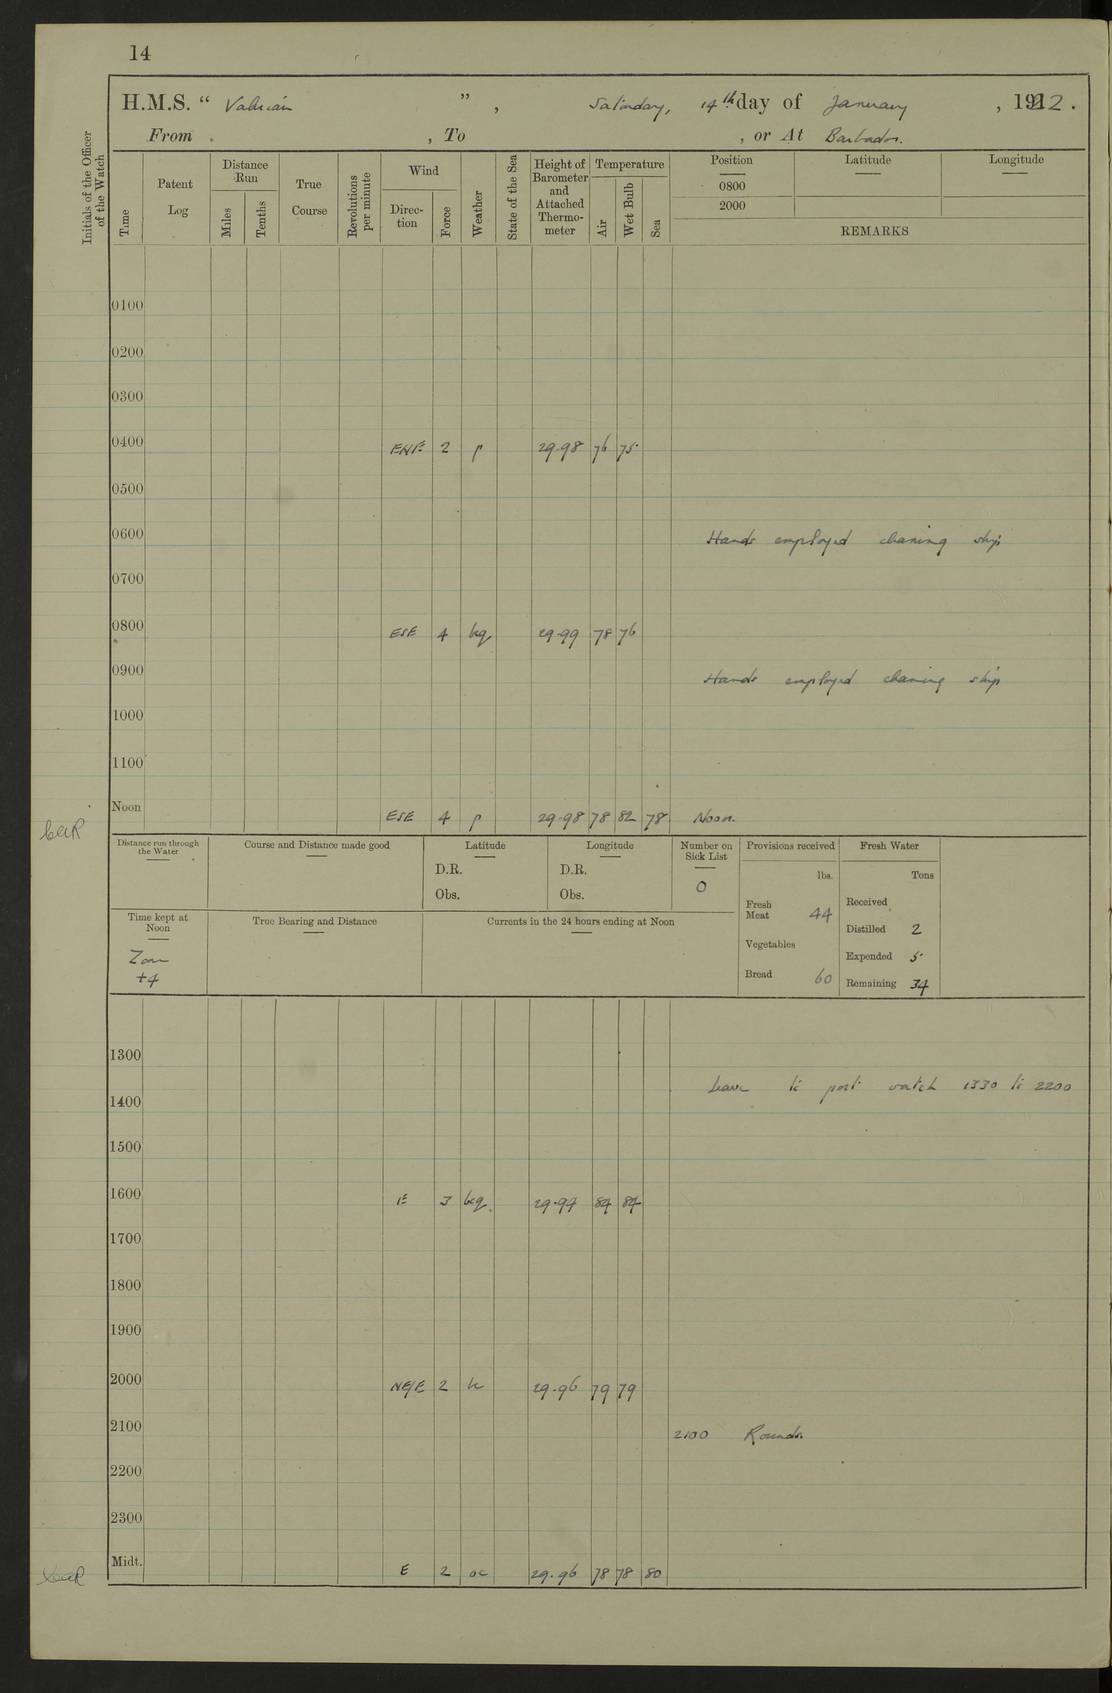 14
H.M.S. “ Valerian ”, Saturday, 14th day of January, 1922.
From , To , or At Barbados.
Initials of the Officer of the Watch
Time
Patent Log
Distance Run
Miles
Tenths
True Course
Revolutions per minute
Wind
Direc-tion
Force
Weather
State of the Sea
Height of Barometer and Attached Thermo-meter
Temperature
Air
Wet Bulb
Sea
Position Latitude Longitude
0800
2000
REMARKS
0100
0200
0300
0400 ENE 2 p 29.98 76 75
0500
0600 Hands employed cleaning ship
0700
0800 ESE 4 bcq 29.99 78 76
0900 Hands employed cleaning ship
1000
1100
Noon ESE 4 p 29.98 78 82 78 Noon.
Distance run through the Water
Course and Distance made good
Latitude
D.R.
Obs.
Longitude
D.R.
Obs.
Number on Sick List
0
Provisions received
lbs.
Fresh Meat 44
Vegetables
Bread 60
Fresh Water
Tons
Received
Distilled 2
Expended 5
Remaining 34
Time kept at Noon
Zone
+4
True Bearing and Distance
Currents in the 24 hours ending at Noon
1300
Leave to port watch 1330 to 2200
1400
1500
1600 E 3 bcq. 29.94 84 84
1700
1800
1900
2000 NE/E 2 bc 29.96 79 79
2100 2100 Rounds.
2200
2300
Midt. E 2 oc 29.96 78 78 80